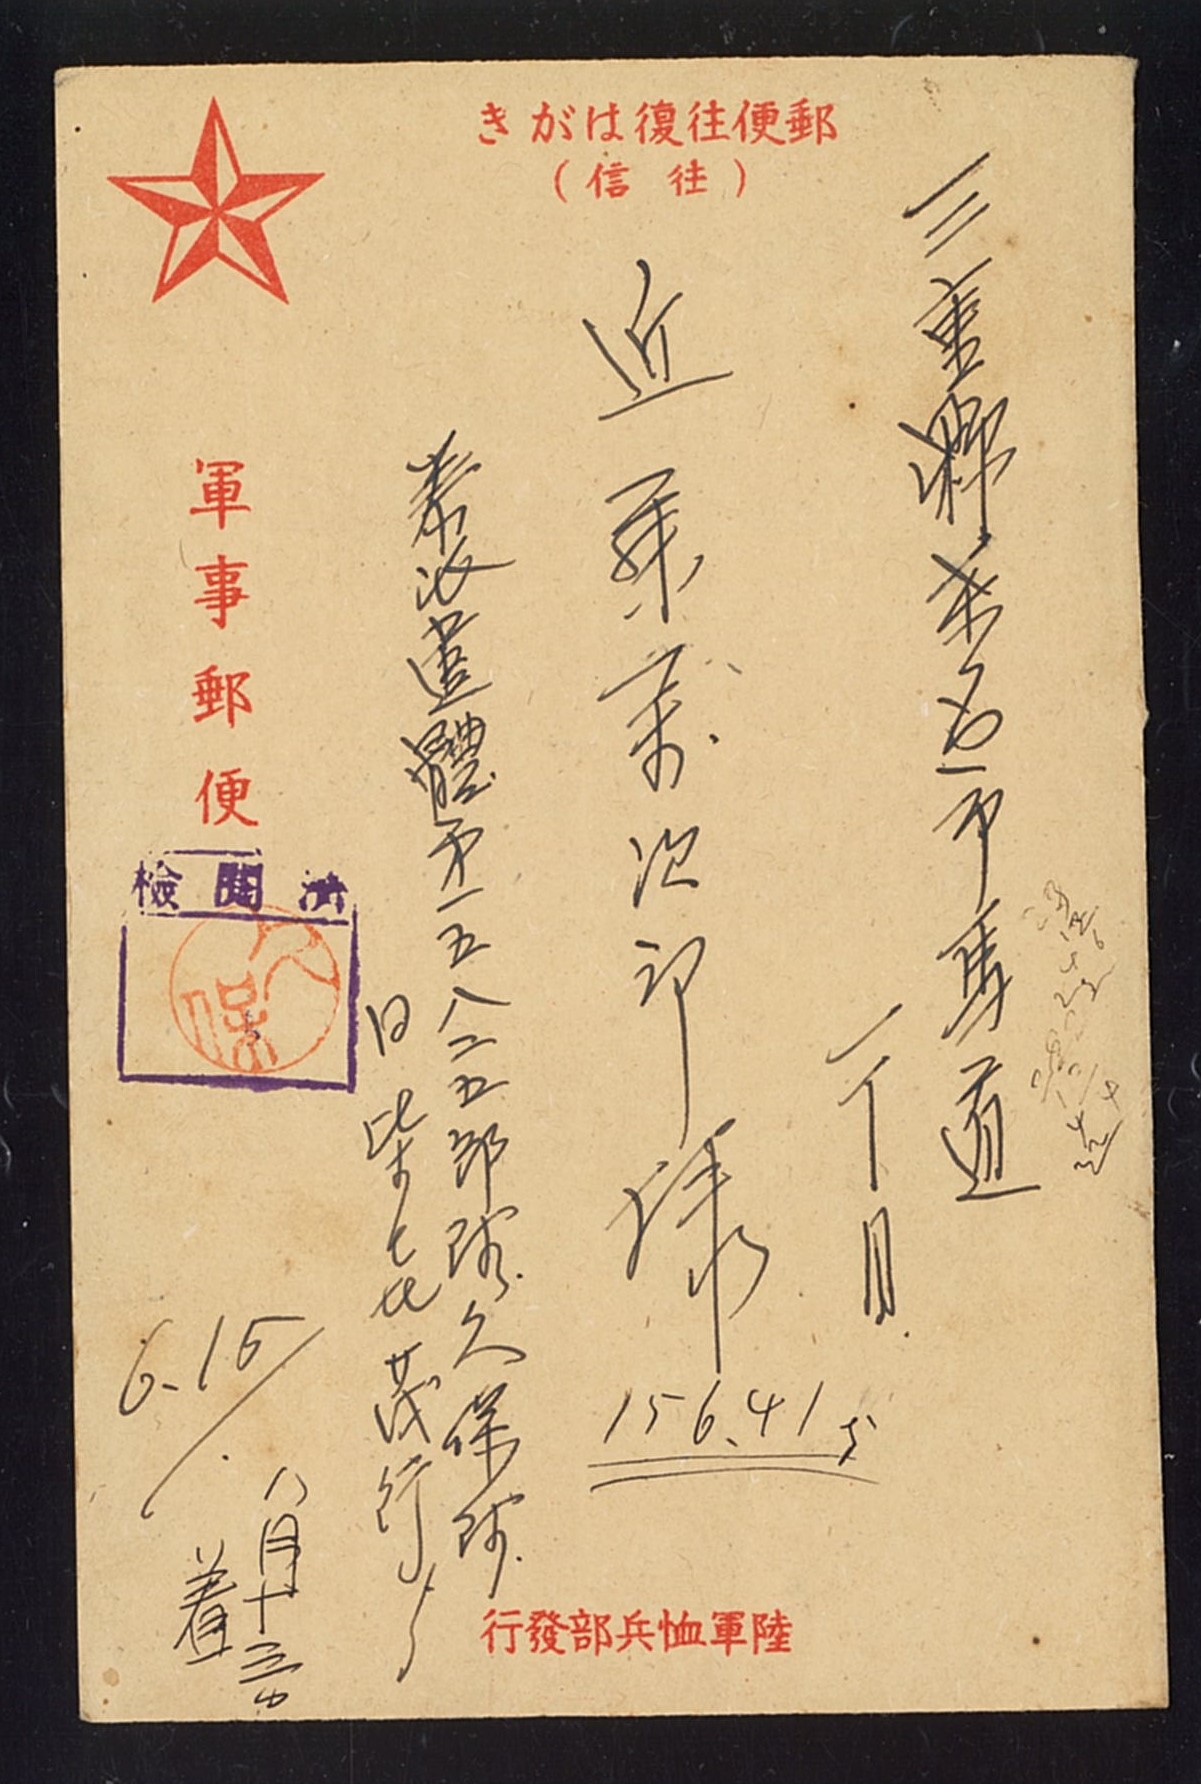 郵便往復はがき
(往信)
三重縣桑名市馬道
一丁目
近藤萬次郎様
156.41
秦派遣體第一五八二五部隊久保隊
茂行
軍事郵便
検閲済
久保
6.15
八月十三日
着
陸軍恤兵部發行